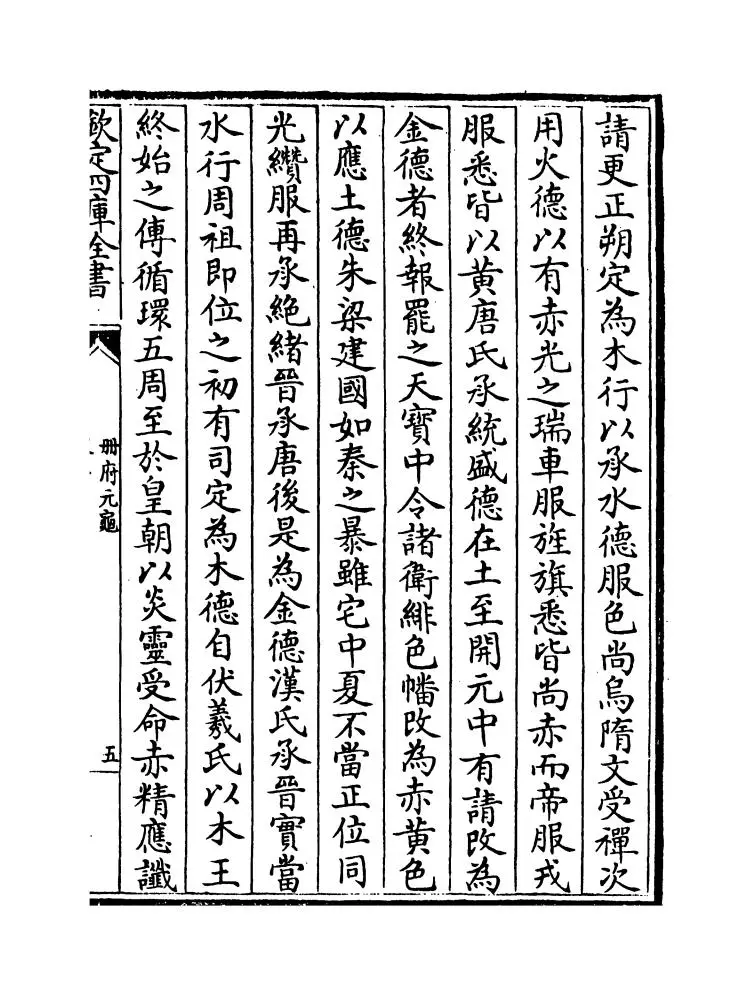 請更正朔定為木行以承水德服色尚烏隋文受禪次
用火德以有赤光之瑞車服旌旗悉皆尚赤而帝服戎
服悉皆以黄唐氏承統盛德在土至開元中有請改為
金德者終報罷之天寶中令諸衛緋色幡改為赤黄色
以應土德朱梁建國如秦之暴雖宅中夏不當正位同
光纘服再承絶緒晉承唐後是為金德漢氏承晉實當
水行周祖即位之初有司定為木德自伏羲氏以木王
終始之傳循環五周至於皇朝以炎靈受命赤精應讖
欽定四庫全書
册府元龜
五